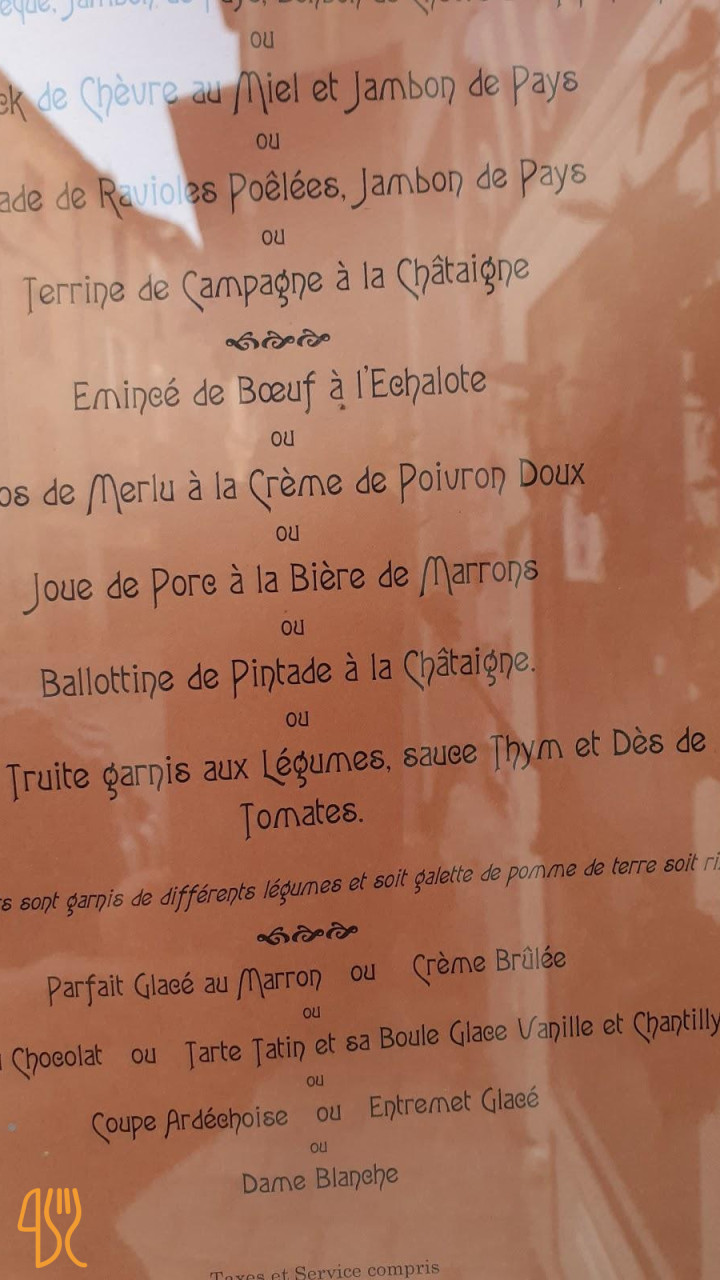 ou
de Chèvre au Miel et Jambon de Pays
ou
de Ravioles Poêlées, Jambon de Pays
ou
Terrine de Campagne à la Châtaigne
Emincé de Bœuf à l'Echalote
ou
de Merlu à la Crème de Poivron Doux
ou
Joue de Porc à la Bière de Marrons
ou
Ballottine de Pintade à la Châtaigne.
ou
Truite garnis aux Légumes, sauce Thym et Dès de
Tomates.
sont garnis de différents légumes et soit galette de pomme de terre soit
Parfait Glacé au Marron ou Crème Brûlée
ou
Chocolat ou Tarte Tatin et sa Boule Glace Vanille et Chantilly
ou
Coupe Ardéchoise ou Entremet Glacé
ou
Dame Blanche
Taxes et Service compris